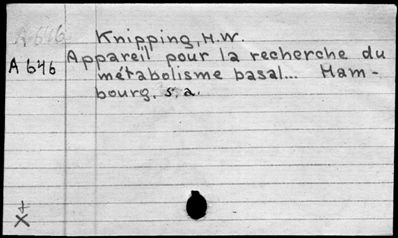 A 646 Knipping, H.W.
A 646 Appareil pour la recherche du
métabolisme basal... Ham-
bourg, s.a.